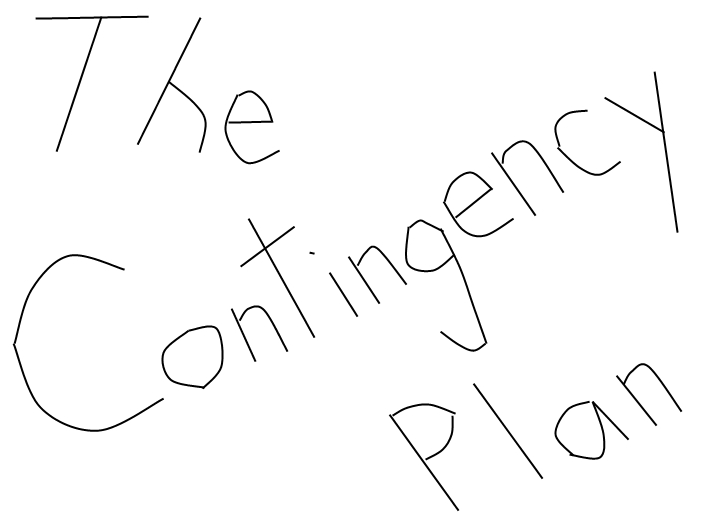 The
Contingency
Plan